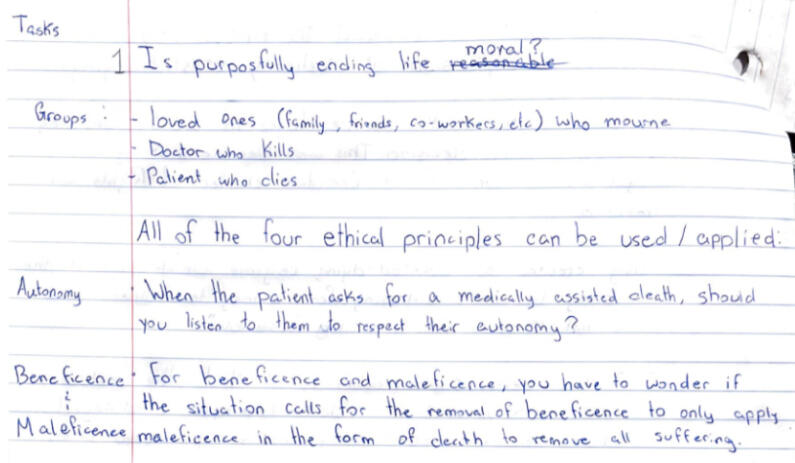 Tasks
1 Is purposfully ending life reasonable moral?
Groups : - loved ones (family, friends, co-workers, etc) who mourne
- Doctor who kills
- Patient who dies
All of the four ethical principles can be used / applied:
Autonomy · When the patient asks for a medically assisted death, should
you listen to them to respect their autonomy?
Beneficence · For beneficence and maleficence, you have to wonder if
the situation calls for the removal of beneficence to only apply
Maleficence maleficence in the form of death to remove all suffering.